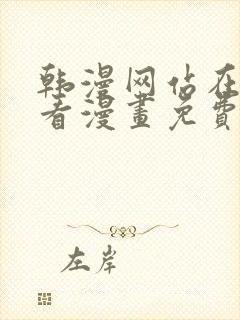 韩漫网站在
看漫畫免費
左岸